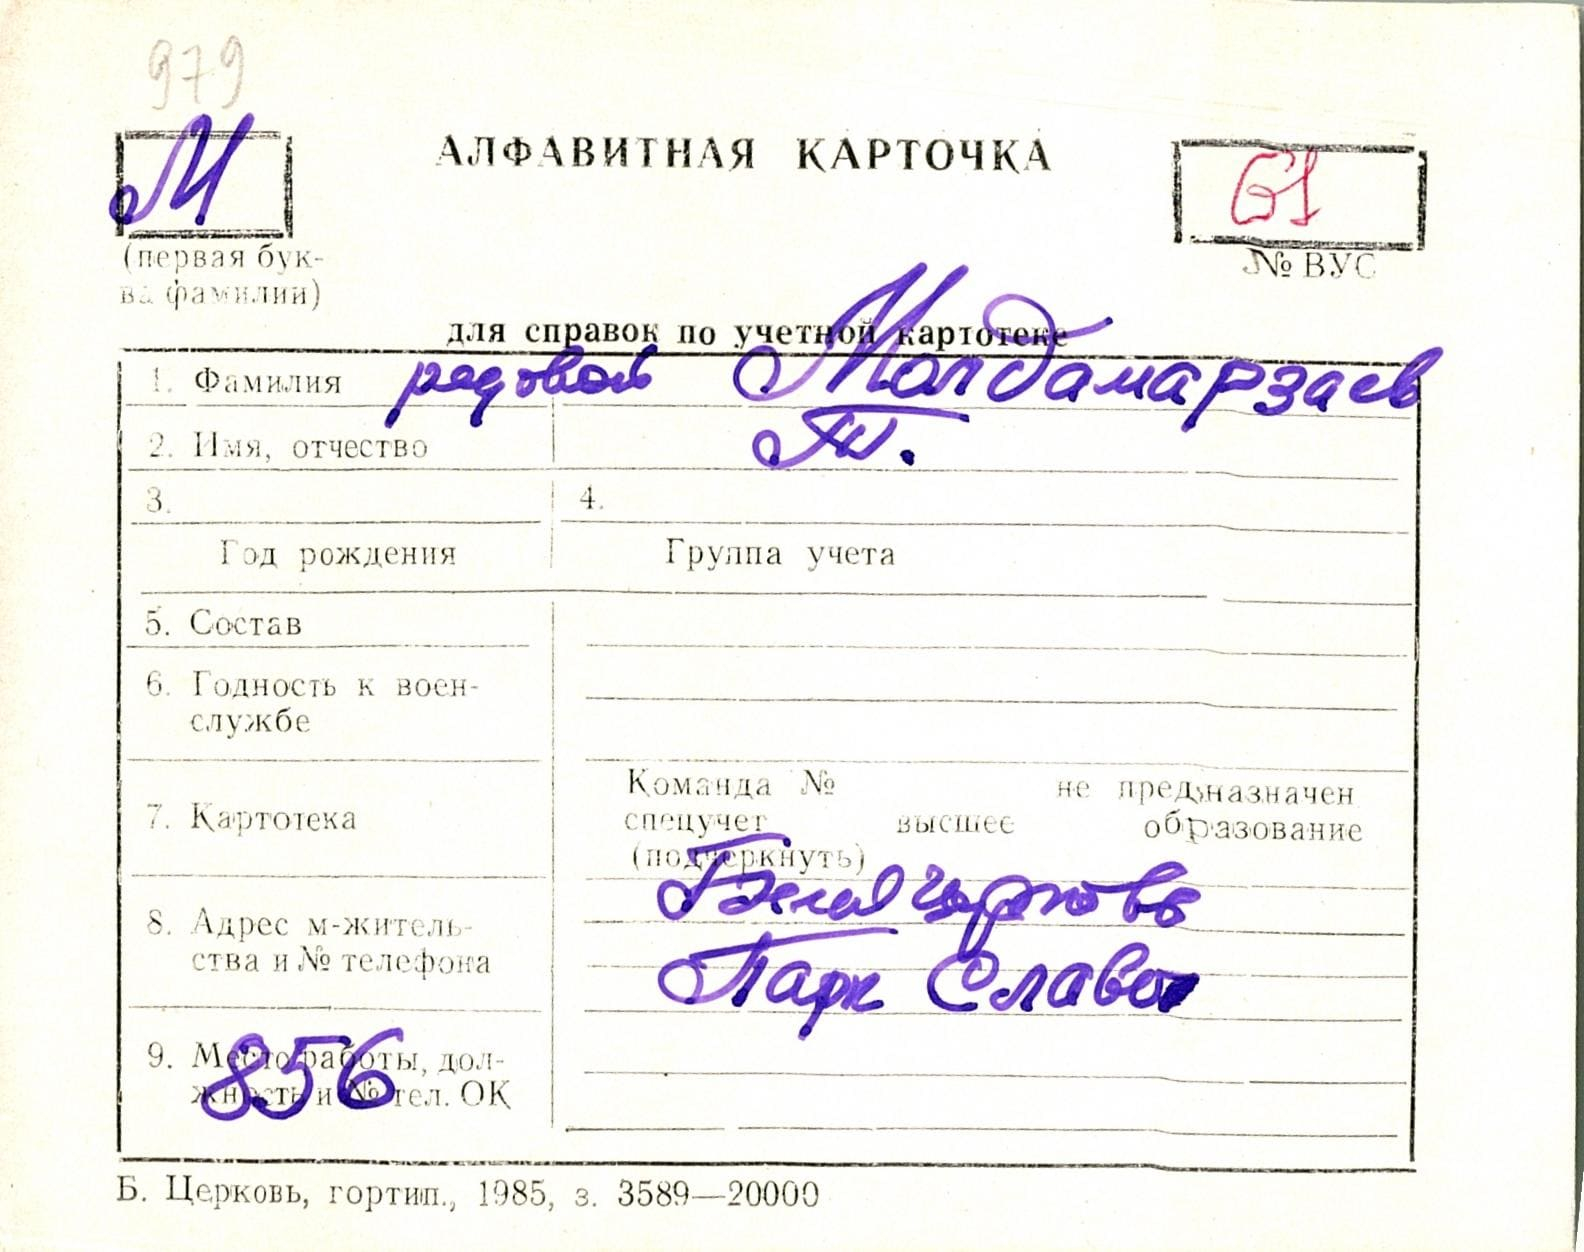 979
М
АЛФАВИТНАЯ КАРТОЧКА
61
(первая бук-
ва фамилии)
№ ВУС
для справок по учетной картотеке
1. Фамилия рядовой Молдамарзаев
2. Имя, отчество Т.
3. 4.
Год рождения Группа учета
5. Состав
6. Годность к воен-
службе
7. Картотека
Команда № не предназначен
спецучет высшее образование
(подчеркнуть)
8. Адрес м-житель-
ства и № телефона
Белая Церковь
Парк Славы
9. Место работы, дол-
жность и № тел. ОК
856
Б. Церковь, гортип., 1985, з. 3589—20000